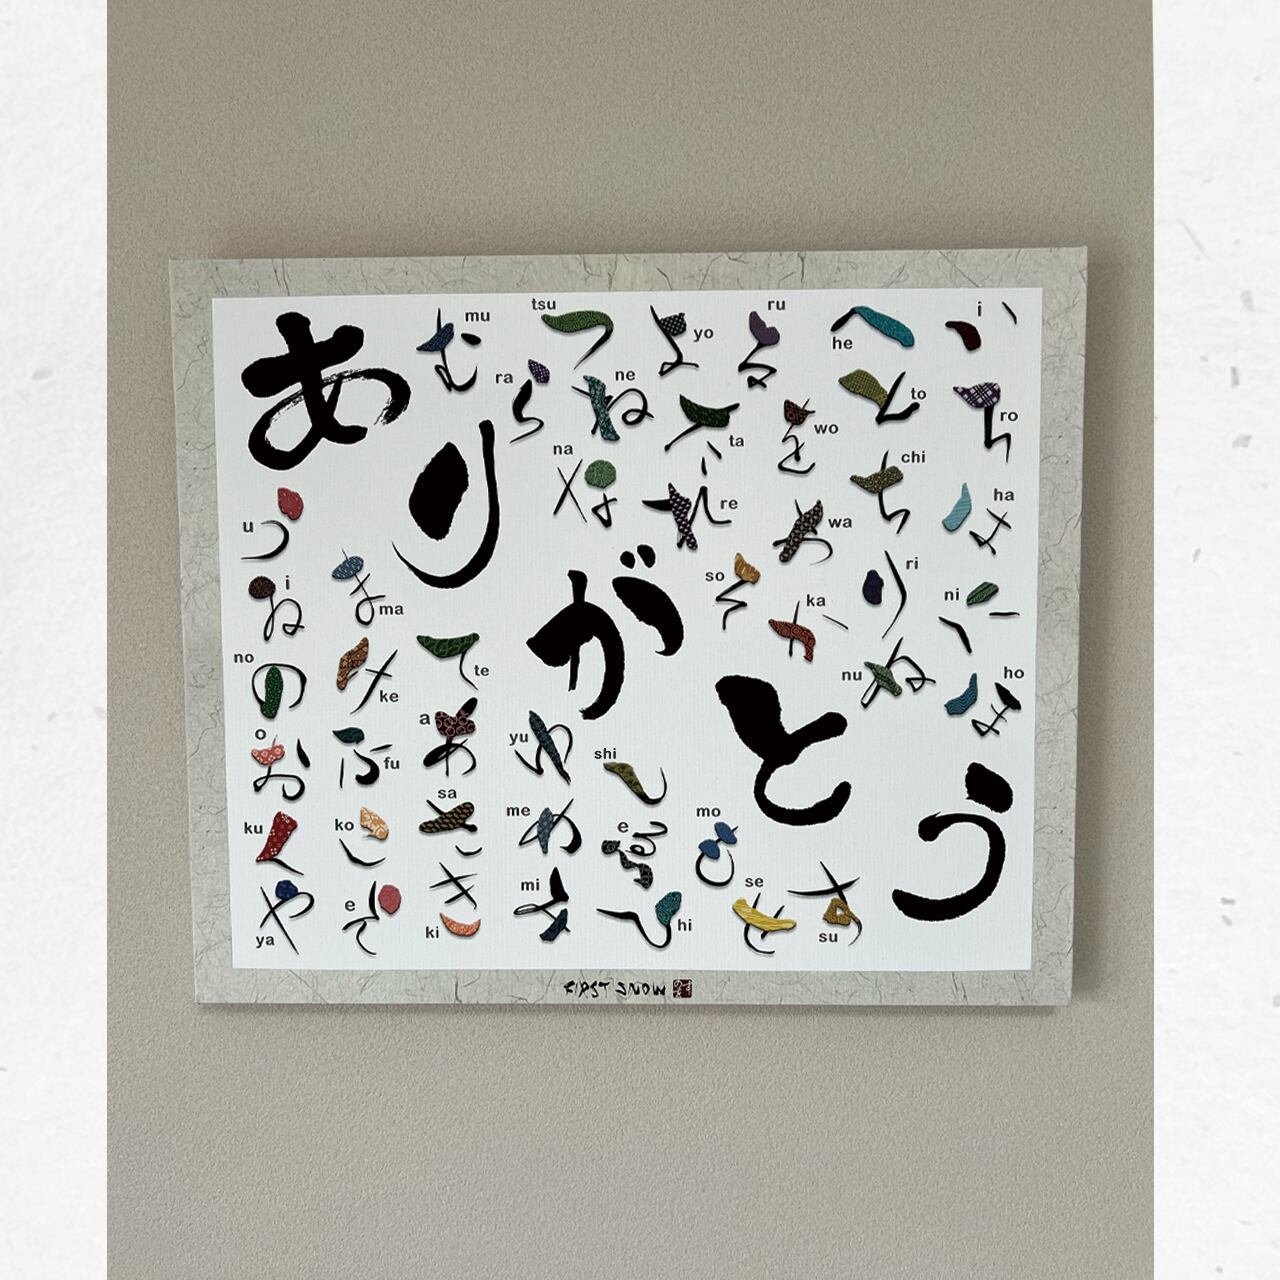 ありがとう
い i
ろ ro
は ha
に ni
ほ ho
へ he
と to
ち chi
り ri
ぬ nu
る ru
を wo
わ wa
か ka
よ yo
た ta
れ re
そ so
つ tsu
ね ne
な na
ら ra
む mu
う u
ゐ i
の no
お o
く ku
や ya
ま ma
け ke
ふ fu
こ ko
え e
て te
あ a
さ sa
き ki
ゆ yu
め me
み mi
し shi
ゑ e
ひ hi
も mo
せ se
す su